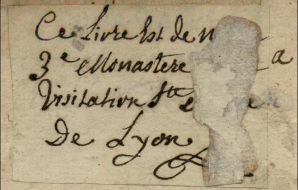 Ce Livre Est de n
3e Monastere a
Visitation Ste
De Lyon